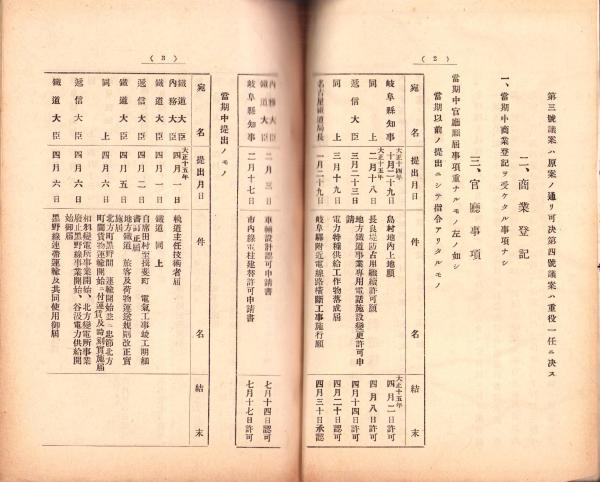 (2)
第三號議案ハ原案ノ通リ可決第四號議案ハ重役一任ニ決ス
二、商業登記
一、當期中商業登記ヲ受ケタル事項ナシ
三、官廳事項
當期中官廳願屆事項重ナルモノ左ノ如シ
當期以前ノ提出ニシテ指令アリタルモノ
宛名 提出月日 件名 結末
岐阜縣知事 大正十四年十月二十九日 島村地內上地願 大正十五年四月二日許可
同上 大正十五年二月十八日 長良堤防占用繼續許可願 四月八日許可
遞信大臣 三月二十三日 地方鐵道事業專用電話施設變更許可申請 四月十四日許可
同上 三月十九日 電力特種供給工作物落成屆 四月二十日許可
名古屋鐵道局長 一月二十九日 岐阜驛附近電線路橫斷工事施行願 四月三十日承認
(3)
內務大臣 鐵道大臣 二月三日 車輛設計認可申請書 七月十四日認可
岐阜縣知事 二月十七日 市內線電柱建替許可申請書 七月十七日許可
當期中提出ノモノ
宛名 提出月日 件名 結末
鐵道大臣 內務大臣 大正十五年四月一日 軌道主任技術者屆
鐵道大臣 四月一日 鐵道同上
遞信大臣 四月二日 自席田村至揖斐町 電氣工事竣工期繰書訂正屆
鐵道大臣 四月五日 地方鐵道 旅客及荷物運送規則改正實施屆
同上 四月六日 北方町黑野間 運輸開始並ニ忠節北方町間貨物運輸開始ニ付運賃及時刻實施屆
遞信大臣 四月六日 相羽變電所事業開始、北方變電所事業廢止黑野線事業開始、谷汲電力供給開始御屆
鐵道大臣 四月六日 黑野線連帶運輸及共同使用御屆